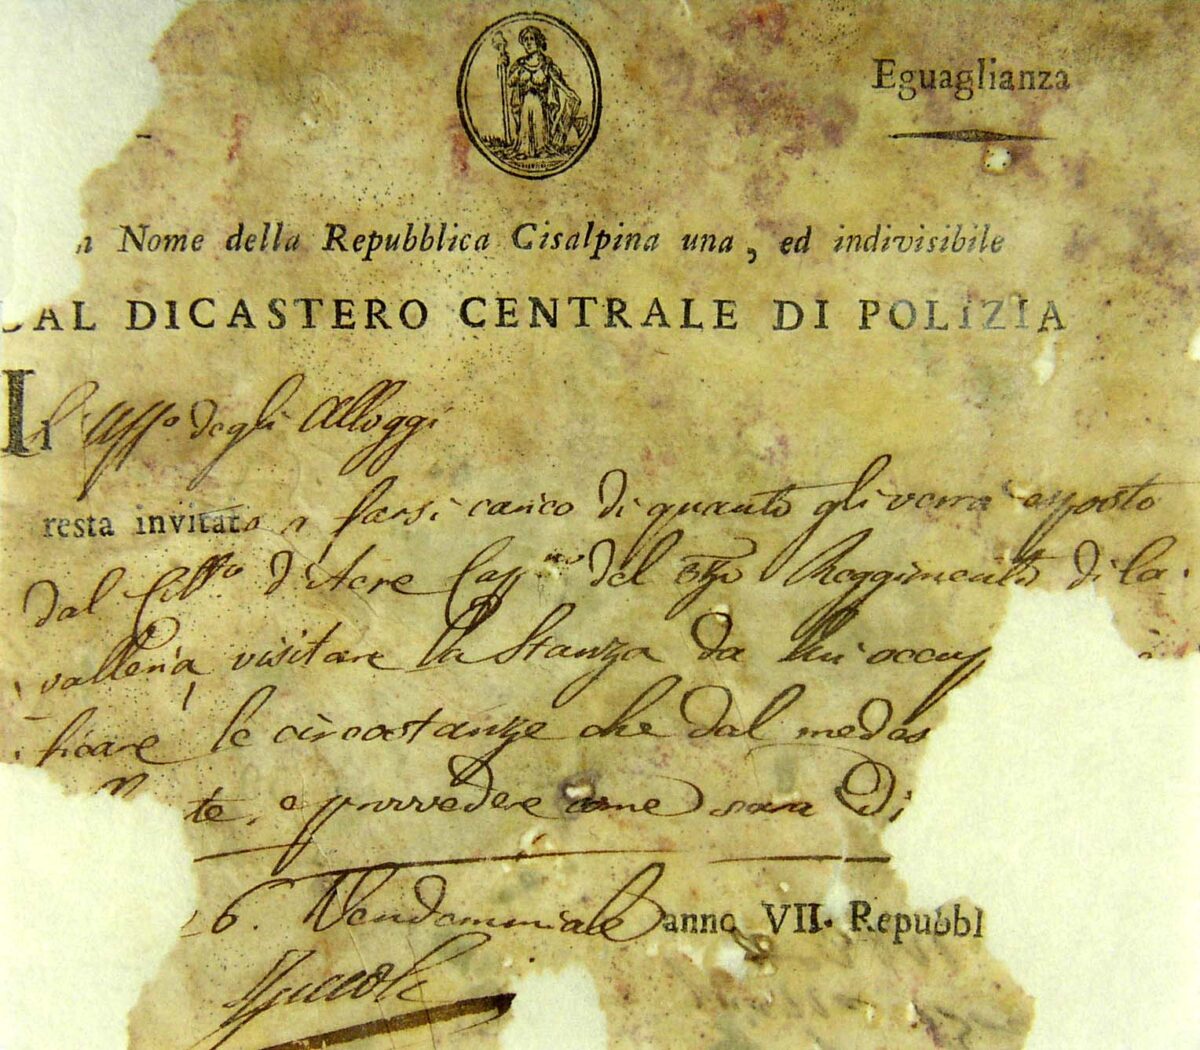 Eguaglianza
Nome della Repubblica Cisalpina una, ed indivisibile
DAL DICASTERO CENTRALE DI POLIZIA
Il l'Uffo degli Alloggi
resta invitato a farsi carico di quanto gli verrà esposto
dal Citt.o Capp.no del Reggimento di Ca-
valleria, visitare la Stanza da lui occup
ficare le circostanze che dal medes
te, e provvedere come sarà di
6. Vendemmiale anno VII. Repubbl